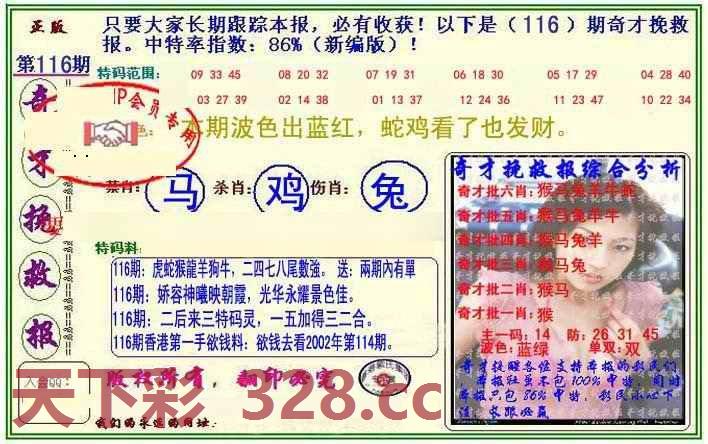 正版
只要大家长期跟踪本报，必有收获！以下是（116）期奇才挽救
报。中特率指数：86%（新编版）！
第116期
特码范围：
09 33 45 08 20 32 07 19 31 06 18 30 05 17 29 04 28 40
03 27 39 02 14 38 01 13 37 12 24 36 11 23 47 10 22 34
奇才挽救报
VIP会员专用
本期波色出蓝红，蛇鸡看了也发财。
禁肖：马 杀肖：鸡 伤肖：兔
特码料：
116期：虎蛇猴龍羊狗牛，二四七八尾數強。 送：兩期內有單
116期：娇容神曦映朝霞，光华永耀景色佳。
116期：二后来三特码灵，一五加得三二合。
116期香港第一手欲钱料：欲钱去看2002年第114期。
版权所有，翻印必究
我们的永远的网址：
奇才挽救报综合分析
奇才批六肖：猴马兔羊牛蛇
奇才批五肖：猴马兔羊牛
奇才批四肖：猴马兔羊
奇才批三肖：猴马兔
奇才批二肖：猴马
奇才批一肖：猴
主一码：14 防：26 31 45
波色：蓝绿 单双：双
奇才提醒各位支持本报的彩民们
本报社虽不包100%中特，但时
本报只包86%中特，彩民小心下
注，长跟必赢
天下彩 328.cc